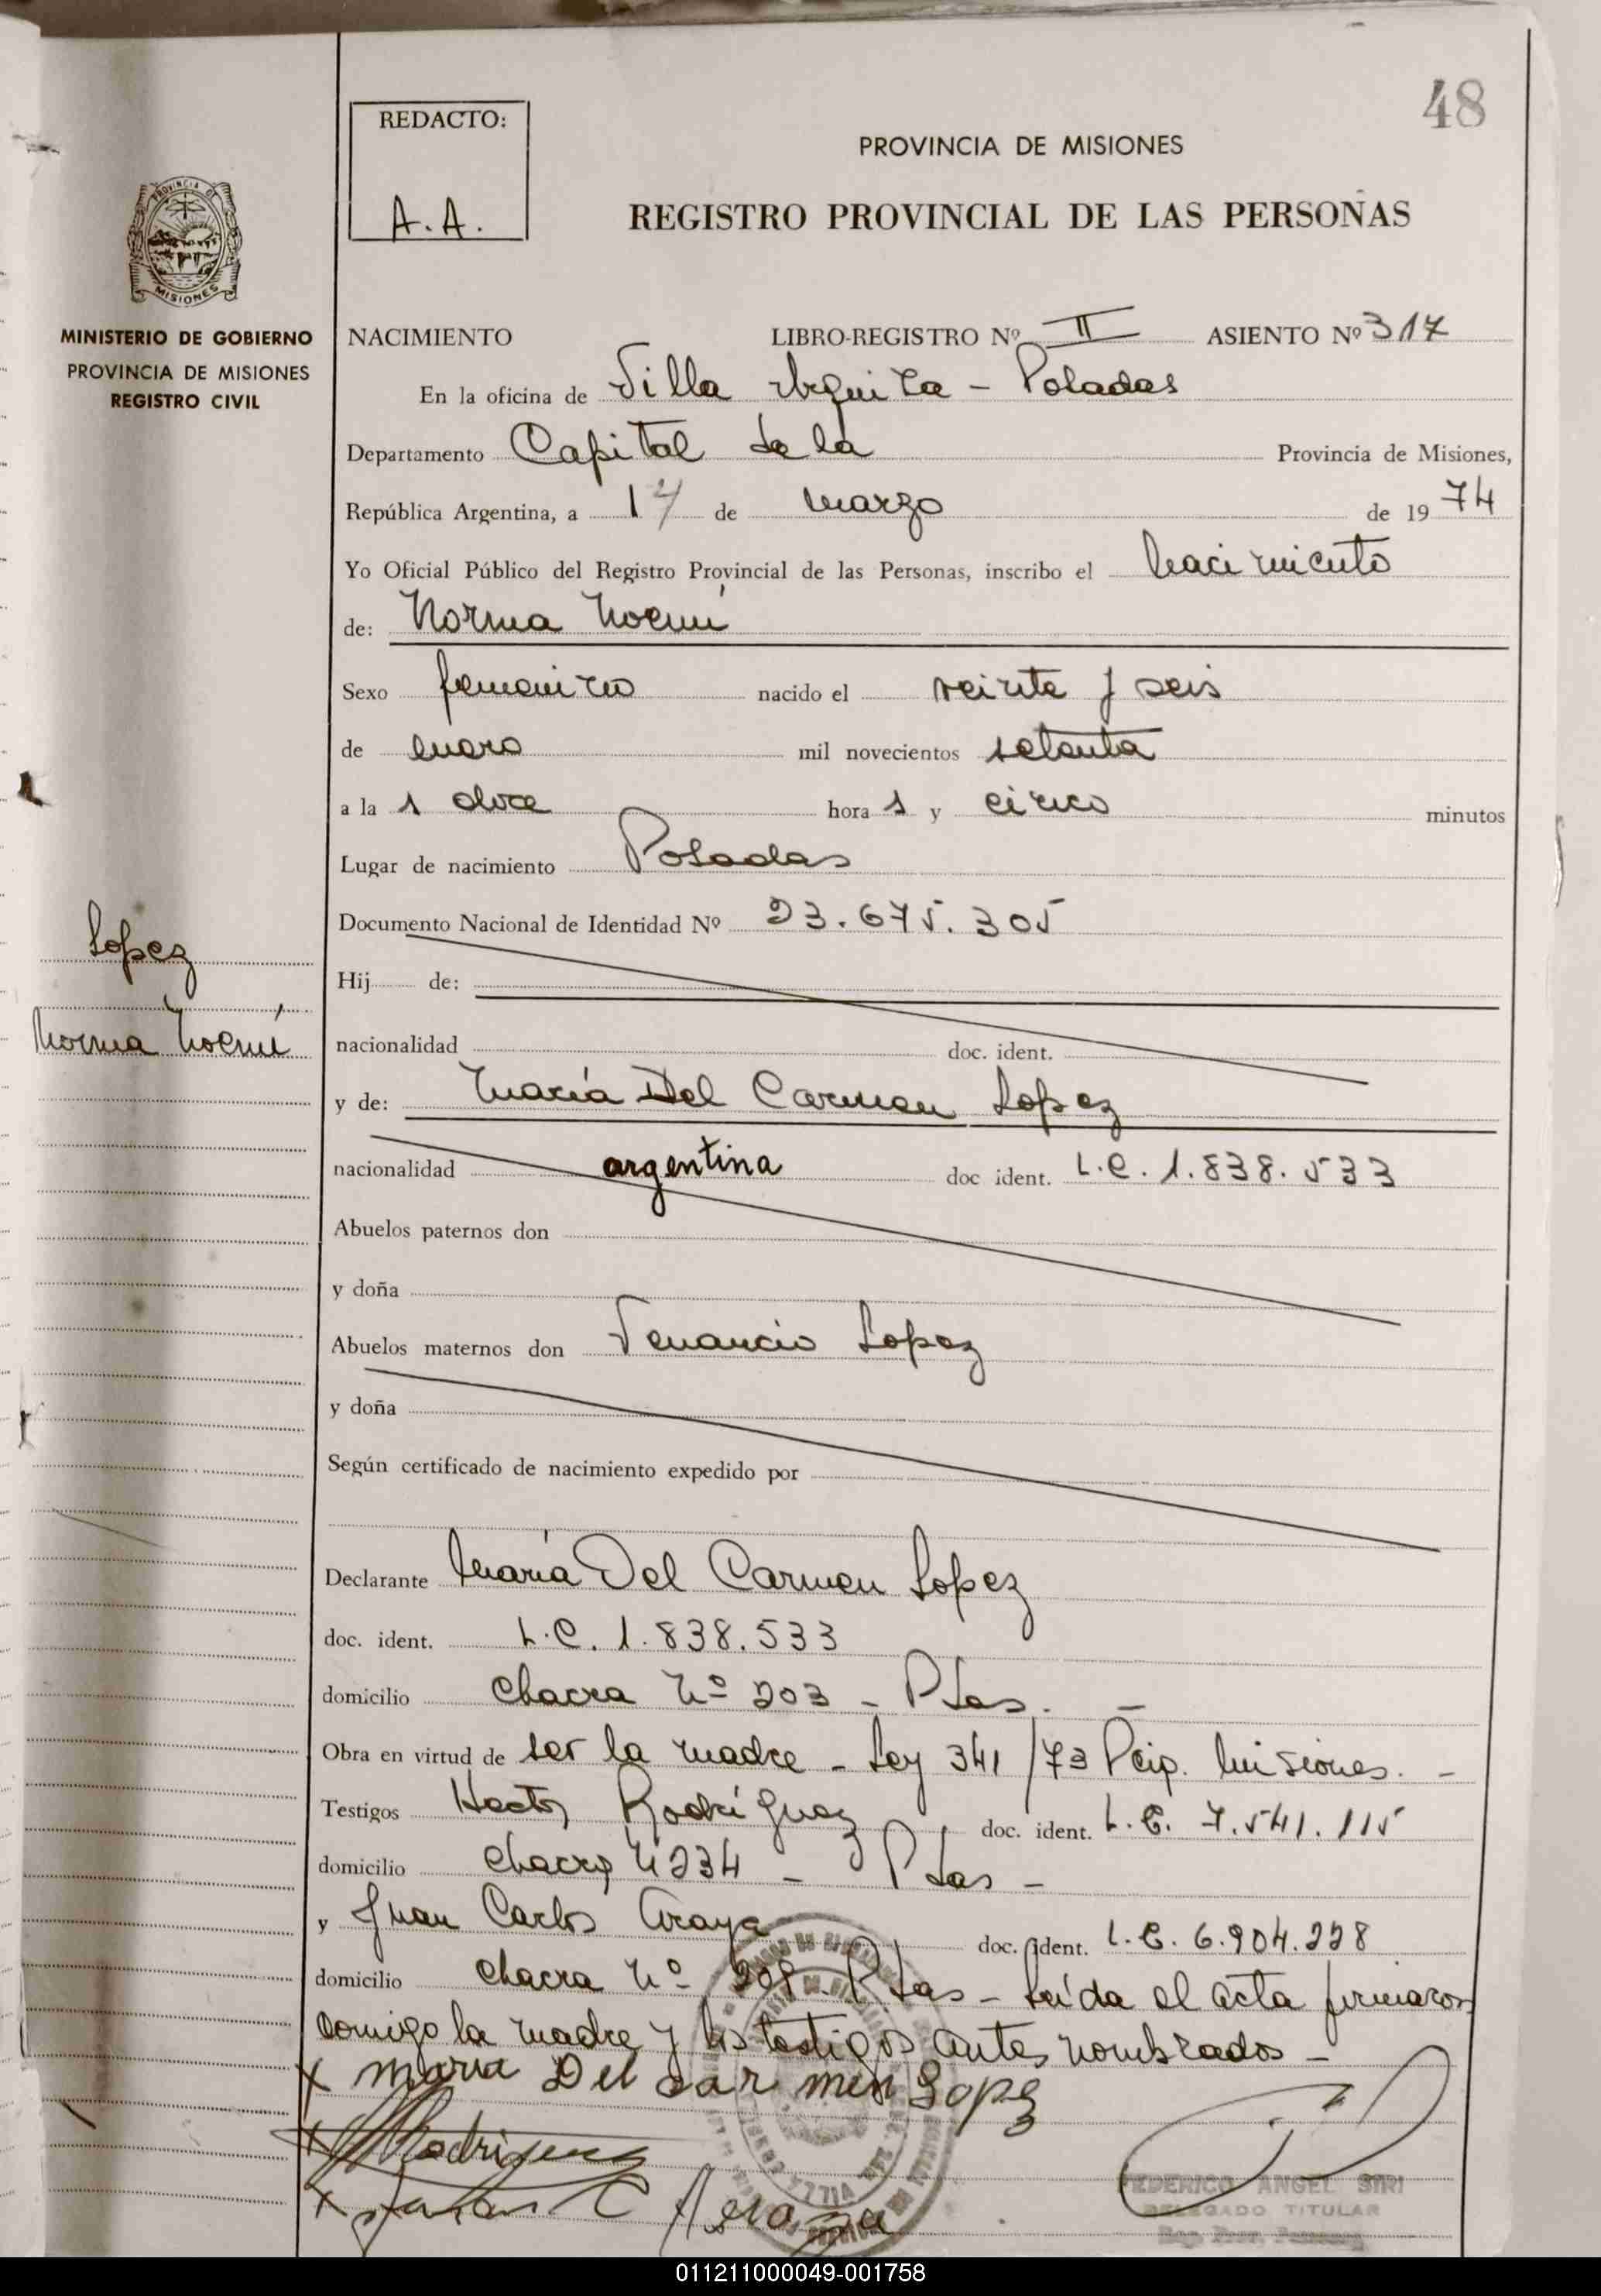 48
REDACTO:
A.A.
PROVINCIA DE MISIONES
REGISTRO PROVINCIAL DE LAS PERSONAS
PROVINCIA DE
MISIONES
MINISTERIO DE GOBIERNO
PROVINCIA DE MISIONES
REGISTRO CIVIL
NACIMIENTO LIBRO-REGISTRO Nº II ASIENTO Nº 317
En la oficina de Villa Urquiza - Posadas
Departamento Capital de la Provincia de Misiones,
República Argentina, a 17 de marzo de 19 74
Yo Oficial Público del Registro Provincial de las Personas, inscribo el nacimiento
de: Norma Noemí
Sexo femenino nacido el veinte y seis
de enero mil novecientos setenta
a la s doce hora s y cinco minutos
Lugar de nacimiento Posadas
Documento Nacional de Identidad Nº 23.675.305
Lopez
Norma Noemí
Hij de:
nacionalidad doc. ident.
y de: María Del Carmen Lopez
nacionalidad argentina doc ident. L.C. 1.838.533
Abuelos paternos don
y doña
Abuelos maternos don Venancio Lopez
y doña
Según certificado de nacimiento expedido por
Declarante María Del Carmen Lopez
doc. ident. L.C. 1.838.533
domicilio Chacra Nº 203 - Pdas. -
Obra en virtud de ser la madre - Ley 341/73 Pcip. Misiones. -
Testigos Hector Rodríguez doc. ident. L.E. 7.541.115
domicilio Chacra N 234 - Pdas -
y Juan Carlos Araya doc. ident. L.E. 6.904.228
domicilio Chacra Nº 208 - Pdas - Leída el acta firmaron
comigo la madre y los testigos antes nombrados -
x Maria Del Carmen Lopez
x Rodriguez
x Juan C
FEDERICO ANGEL SIRI
DELEGADO TITULAR
011211000049-001758